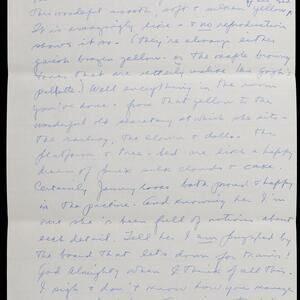 This wonderful smooth, soft & sullen yellow
It is amazingly like - & no reproduction
shows it so. (They're always either
garish brazen yellow. or the maple browny
tones that are utterly unlike Van Gogh's
palette) Well everything in the room
you've done - from that yellow to the
wonderful old secretary at which she sits -
the railway, the clown & dolls - the
platform & tree - bed are like a happy
dream of pink silk clouds & cake.
Certainly Jenny looks both proud & happy
in the picture. And knowing her I'm
sure she's been full of notions about
each detail. Tell her I am
the board that lets down for trains!
God Almighty when I think of all this.
I sigh & don't know how you manage